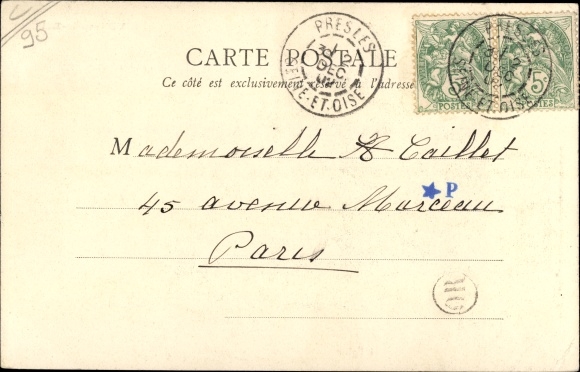 95
CARTE POSTALE
Ce côté est exclusivement réservé à l'adresse
PRESLES
DEC
SEINE-ET-OISE
PRESLES
SEINE-ET-OISE
5
POSTES
POSTES
Mademoiselle A Caillet
45 avenue Marceau
P
Paris